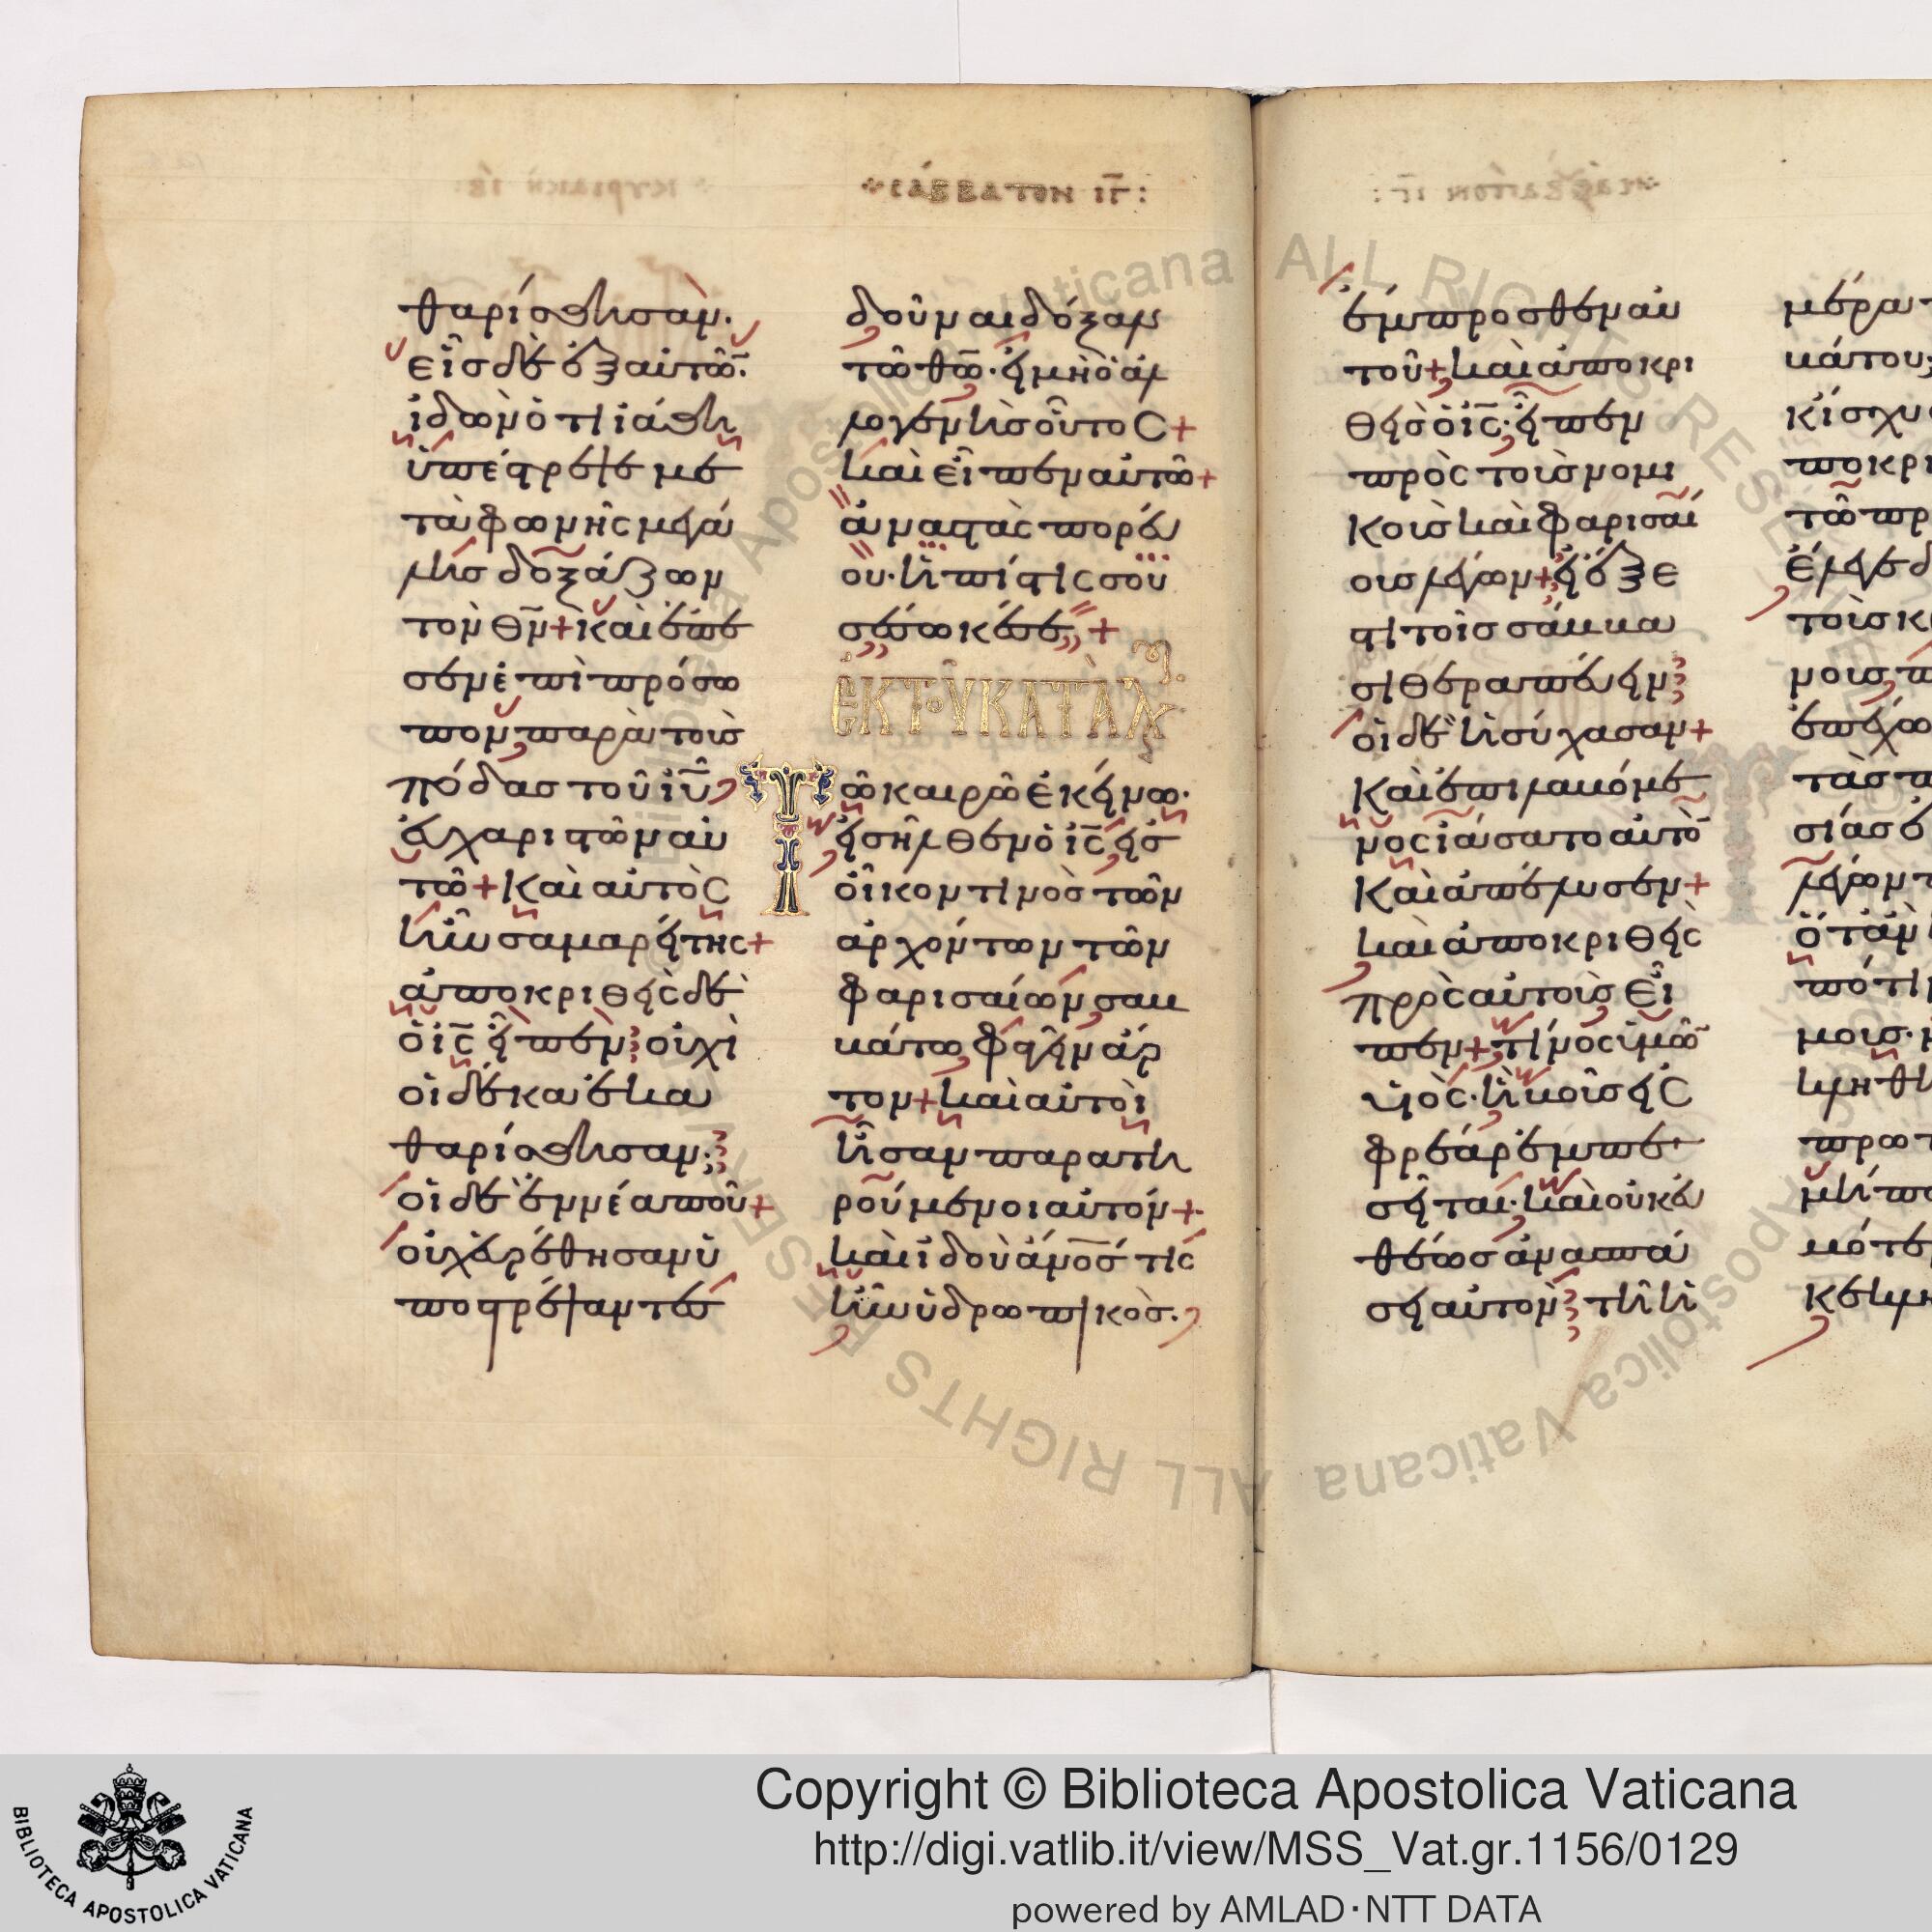 ΣΑΒΒΑΤΟΝ ΙΓ:
θαρίσθησαν.
εἷς δὲ ἐξ αὐτῶ̅.
ἰδὼν ὅτι ἰάθη
ὑπέστρεψε με
τὰ φωνῆς μεγά
λης δοξάζων
τὸν θ̅ν̅+ καὶ ἔπε
σεν ἐπὶ πρόσω
πον παρὰ τοὺς
πόδας τοῦ ιυ̅
εὐχαριστῶν αὐ
τῶ+ καὶ αὐτὸς
ἦν σαμαρείτης+
ἀποκριθεὶς δὲ
ὁ ις̅ εἶπεν· οὐχὶ
οἱ δέκα ἐκα
θαρίσθησαν;
οἱ δὲ ἐννέα ποῦ+
οὐχ εὑρέθησαν ὑ
ποστρέψαντες
δοῦναι δόξαν
τῶ θω̅· εἰ μὴ ὁ ἀλ
λογενὴς οὗτος+
καὶ εἶπεν αὐτῶ+
ἀναστὰς πορεύ
ου· ἡ πίστις σου
σέσωκέ σε+
ἐκ τοῦ κατὰ λ
Τῶ καιρῶ ἐκείνω·
εἰσῆλθεν ὁ ις̅ εἰς
οἶκον τινὸς τῶν
ἀρχόντων τῶν
φαρισαίων σαβ
βάτω φαγεῖν ἄρ
τον+ καὶ αὐτοὶ
ἦσαν παρατη
ρούμενοι αὐτόν+
καὶ ἰδοὺ ἄνο̅ς τις
ἦν ὑδρωπικὸς.
ἔμπροσθεν αὐ
τοῦ+ καὶ ἀποκρι
θεὶς ὁ ις̅· εἶπεν
πρὸς τοὺς νομι
κοὺς καὶ φαρισαί
ους λέγων+ εἰ ἔξε
στι τοῖς σάββα
σι θεραπεύειν;
οἱ δὲ ἡσύχασαν+
καὶ ἐπιλαβόμε
νος ἰάσατο αὐτὸ̅
καὶ ἀπέλυσεν+
καὶ ἀποκριθεὶς
πρὸς αὐτοὺς εἶ
πεν+ τίνος ὑμῶ̅
υἱὸς· ἢ βοῦς εἰς
φρέαρ ἐμπε
σεῖται· καὶ οὐκ εὐ
θέως ἀνασπά
σει αὐτὸν; τῆ ἡ
μέρα τ
βάτου;
κ ἴσχυ
ποκρι
τῶ πρ
ἔλεγε δ
τοὺς κ
νους, π
ἐπέχω
τὰς π
σίας ἐ
λέγων π
ὅταν
πό τι
μους· μ
κληθῆ
πρωτ
μήπο
μότε
κεκλη
Copyright © Biblioteca Apostolica Vaticana
http://digi.vatlib.it/view/MSS_Vat.gr.1156/0129
powered by AMLAD·NTT DATA
BIBLIOTECA APOSTOLICA VATICANA